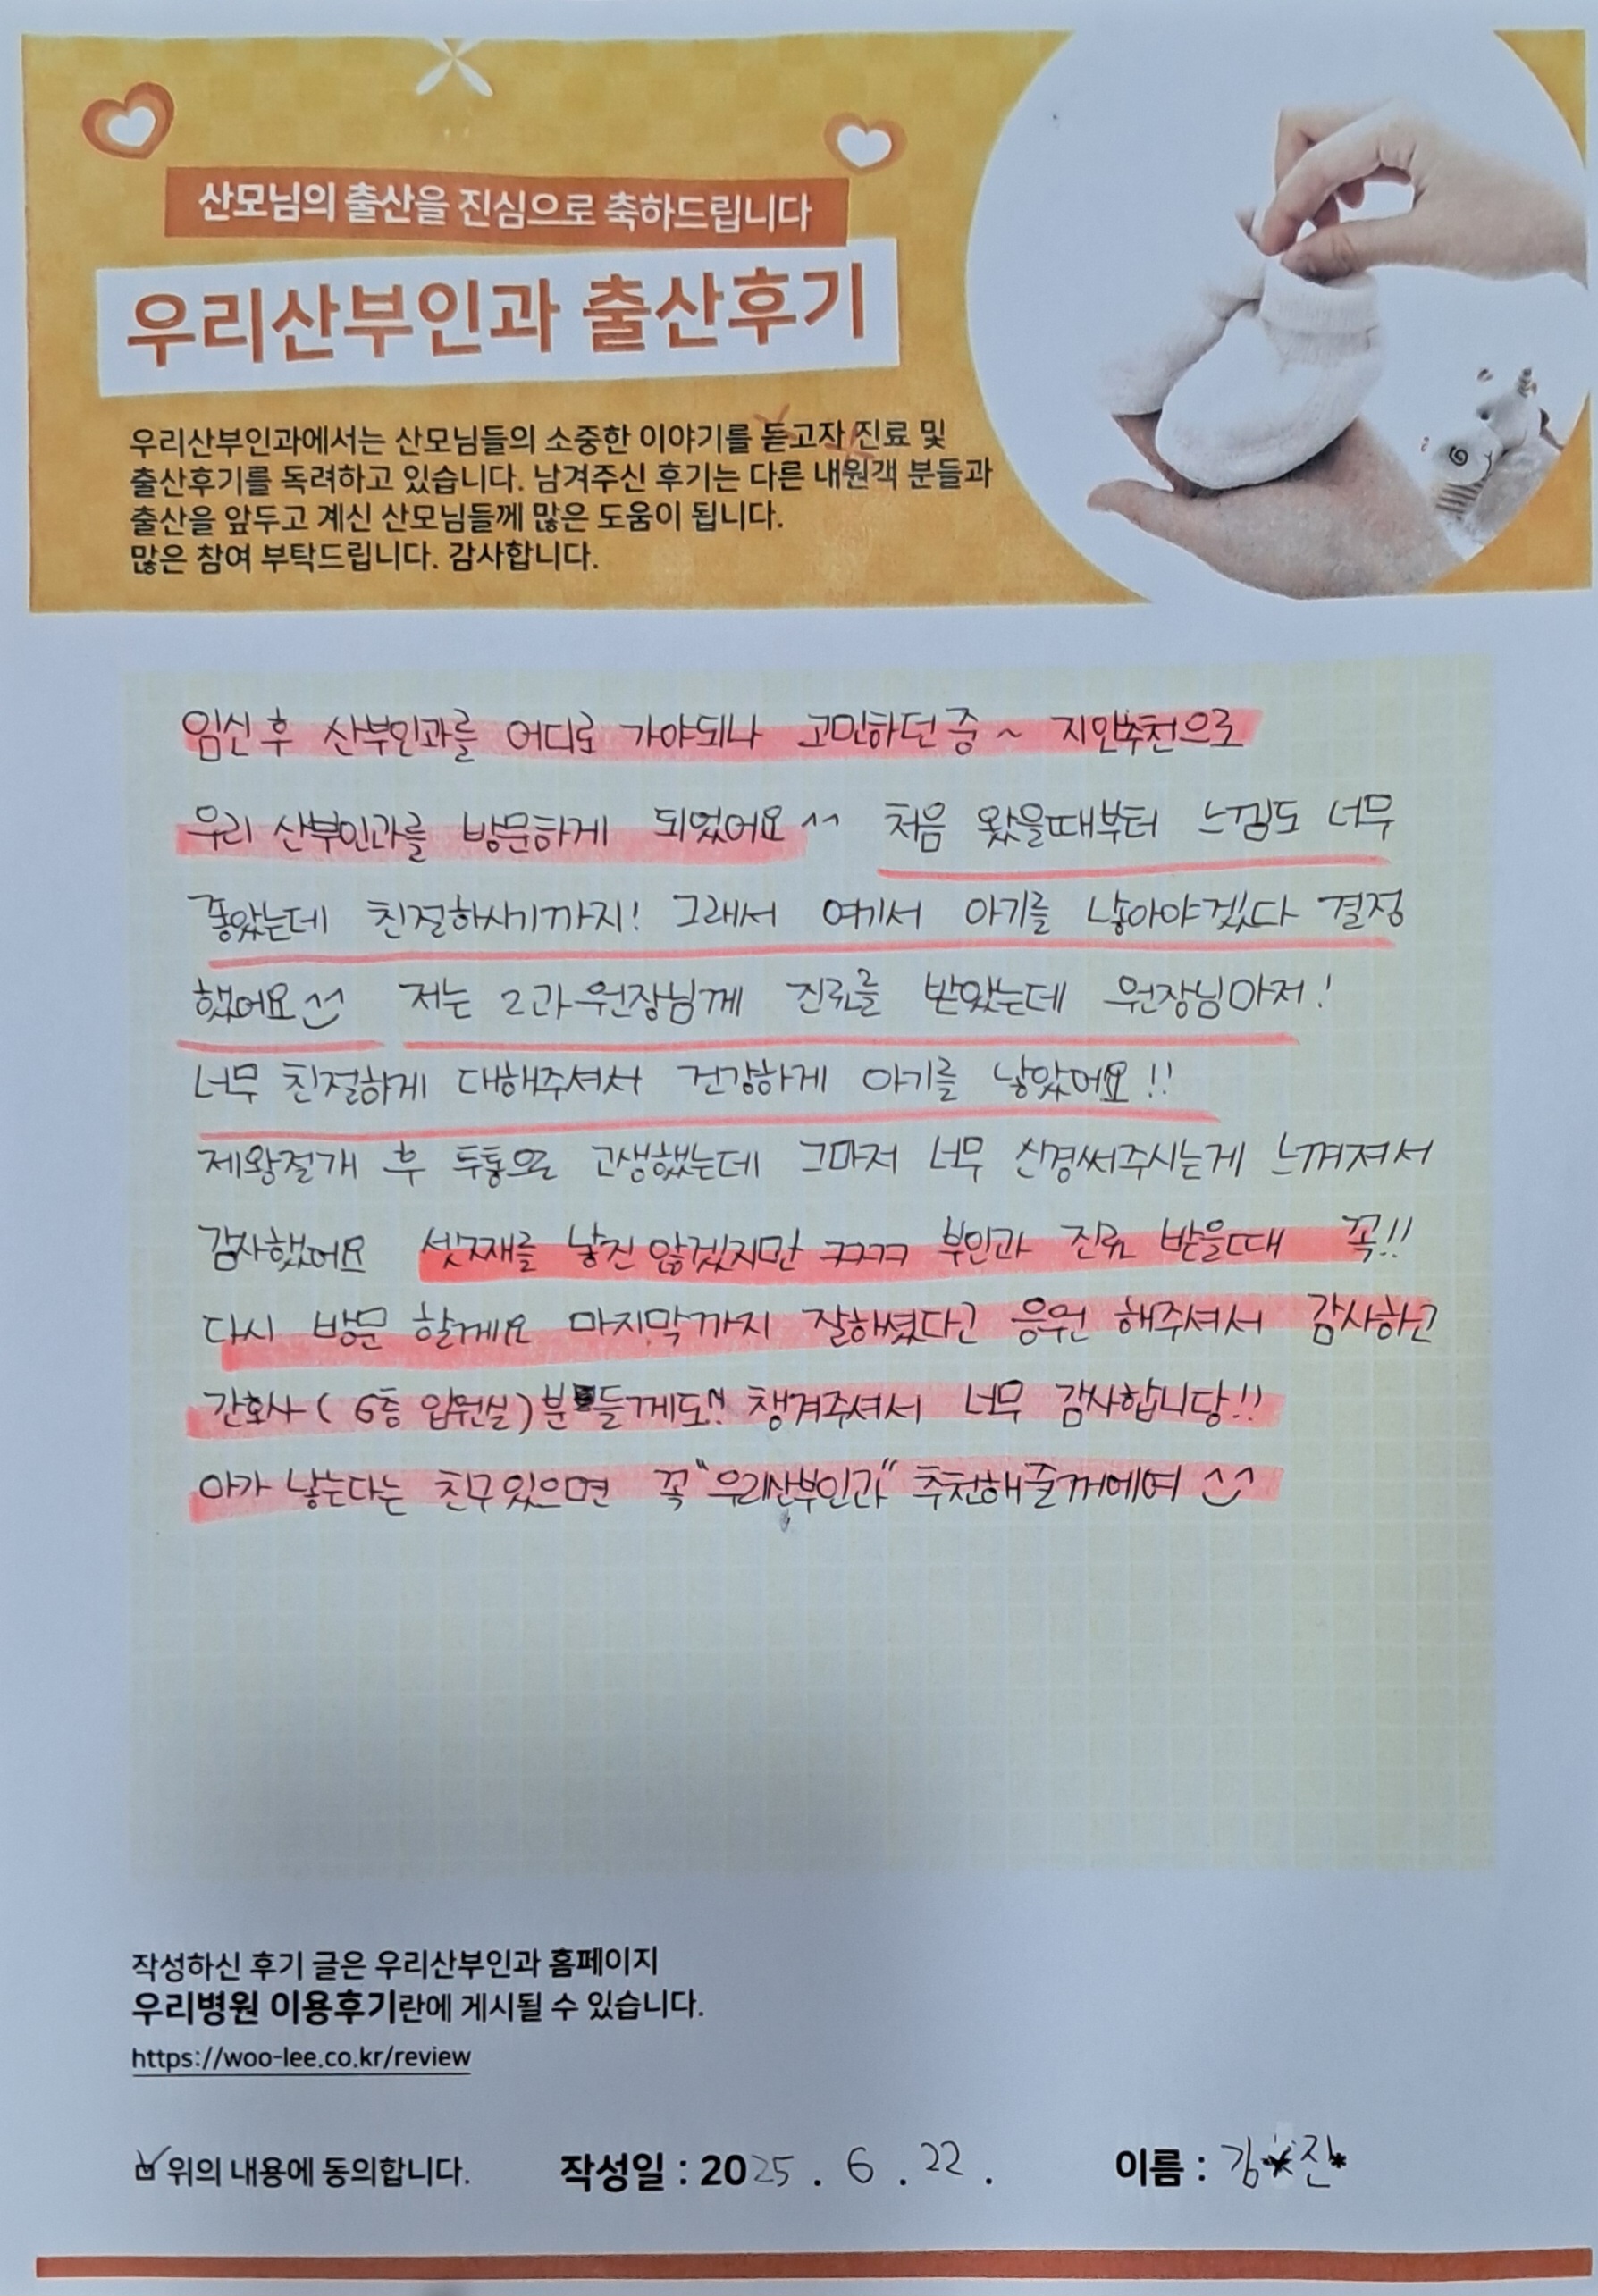 산모님의 출산을 진심으로 축하드립니다
우리산부인과 출산후기
우리산부인과에서는 산모님들의 소중한 이야기를 듣고자 진료 및
출산후기를 독려하고 있습니다. 남겨주신 후기는 다른 내원객 분들과
출산을 앞두고 계신 산모님들께 많은 도움이 됩니다.
많은 참여 부탁드립니다. 감사합니다.
임신 후 산부인과를 어디로 가야되나 고민하던 중 ~ 지인추천으로
우리 산부인과를 방문하게 되었어요 ^^ 처음 왔을때부터 느낌도 너무
좋았는데 친절하시기까지! 그래서 여기서 아기를 낳아야겠다 결정
했어요 ^^ 저는 2과 원장님께 진료를 받았는데 원장님마저!
너무 친절하게 대해주셔서 건강하게 아기를 낳았어요!!
제왕절개 후 두통으로 고생했는데 그마저 너무 신경써주시는게 느껴져서
감사했어요 셋째를 낳진 않겠지만 ㅋㅋㅋㅋ 부인과 진료 받을때 꼭!!
다시 방문 할게요 마지막까지 잘해셨다고 응원 해주셔서 감사하고
간호사 ( 6층 입원실 ) 분들께도!! 챙겨주셔서 너무 감사합니당!!
아가 낳는다는 친구있으면 꼭 "우리산부인과" 추천해줄꺼에여 ^^
작성하신 후기 글은 우리산부인과 홈페이지
우리병원 이용후기란에 게시될 수 있습니다.
https://woo-lee.co.kr/review
위의 내용에 동의합니다. 작성일 : 2025 . 6 . 22 . 이름 : 김*진*